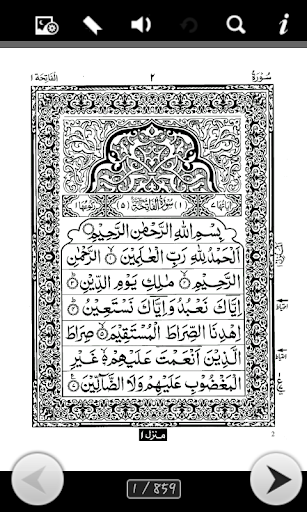 الفاتحة ١
٢
سُورَةُ
اٰيَاتُهَا ٧ (١) سُوْرَةُ الْفَاتِحَةِ (٥) رُكُوْعُهَا ١
بِسْمِ اللهِ الرَّحْمٰنِ الرَّحِيْمِ
اَلْحَمْدُ لِلّٰهِ رَبِّ الْعٰلَمِيْنَ ۙ الرَّحْمٰنِ
الرَّحِيْمِ ۙ مٰلِكِ يَوْمِ الدِّيْنِ ؕ
اِيَّاكَ نَعْبُدُ وَاِيَّاكَ نَسْتَعِيْنُ ؕ
اِهْدِنَا الصِّرَاطَ الْمُسْتَقِيْمَ ۙ صِرَاطَ
الَّذِيْنَ اَنْعَمْتَ عَلَيْهِمْ ۙ غَيْرِ
الْمَغْضُوْبِ عَلَيْهِمْ وَلَا الضَّآلِّيْنَ
منزل ١
2
1 / 859